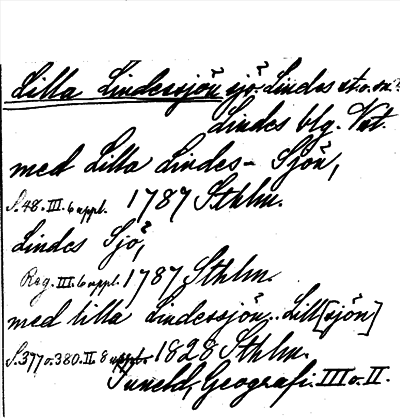 Lilla Lindessjön sjö Lindes st. o. sn.
Lindes blg. Vst.
med Lilla Lindes- Sjön,
S. 48. III. 6 uppl. 1787 Sthlm.
Lindes Sjö,
Reg. III. 6 uppl. 1787 Sthlm.
med lilla Lindessjön. Lill[sjön]
S. 377 o. 380. II. 8 uppl. 1828 Sthlm.
Tuneld, Geografi. III o. II.